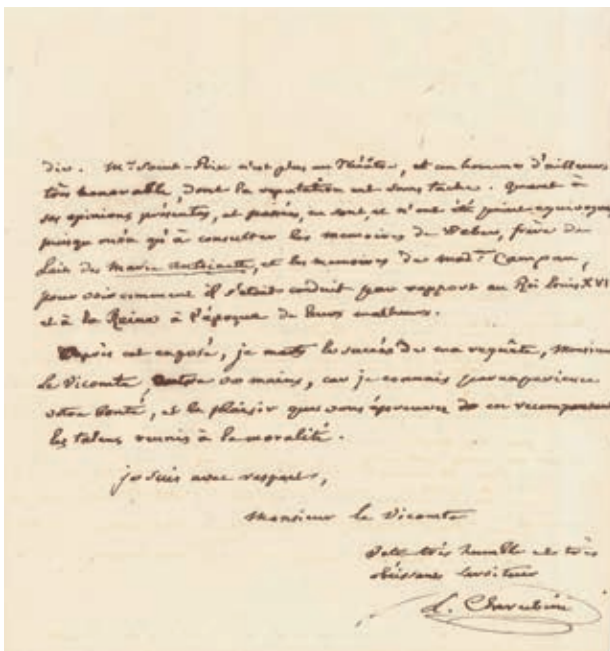 die. Mr. Saint-Prix n'est plus au Théâtre, et un homme d'ailleurs
très honorable, dont la reputation est sans tache. quant à
ses opinions présentes, et passées, ne sont, et n'ont été point equivoques
puisqu'on n'a qu'à consulter les memoires de Weber, frère de
Lait de Marie Antoinette, et les memoires de mad.e Campan,
pour voir comment il s'etait conduit par rapport au Roi Louis XVI
et à la Reine à l'époque de leurs malheurs.
Après cet exposé, je mets le succès de ma requête, Monsieur
le Vicomte, entre vos mains, car je connais par experience
votre bonté, et le plaisir que vous éprouvez en recompensant
les talens reunis à la moralité.
je suis avec respect,
Monsieur le Vicomte
Votre très humble et très
obéissant serviteur
L. Cherubini